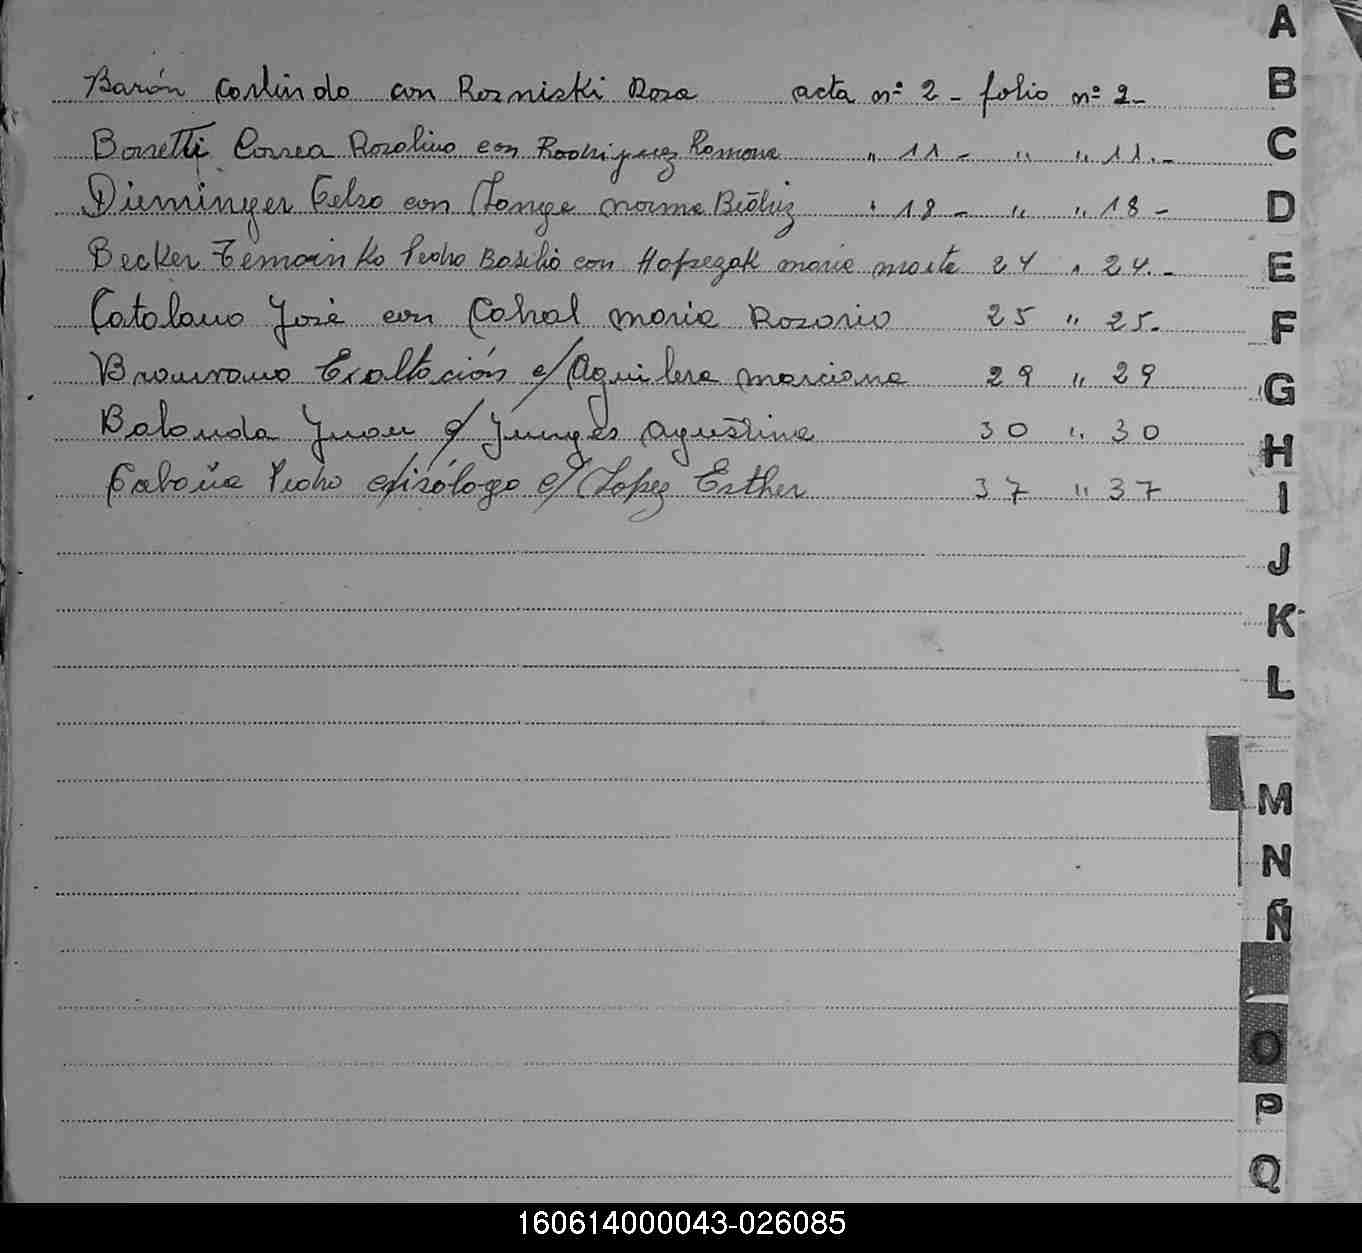 Barón Carlindo con Rozniski Rosa acta nº 2 - folio nº 2-
Borsetti Correa Rosalino con Rodriguez Ramona " 11 - " " 11.-
Dieminger Celso con Lange norma Beatriz " 18 - " " 18 -
Becker Pedro Basilio con maria marta 24 " 24.-
Catalano José con Cabral maria Rosario 25 " 25.
Exaltación c/ Aguilera marciana 29 " 29
Balanda Juan c/ Junges Agustina 30 " 30
Cabaña Pedro c/ Lopez Esther 37 " 37
A
B
C
D
E
F
G
H
I
J
K
L
M
N
Ñ
O
P
Q
160614000043-026085